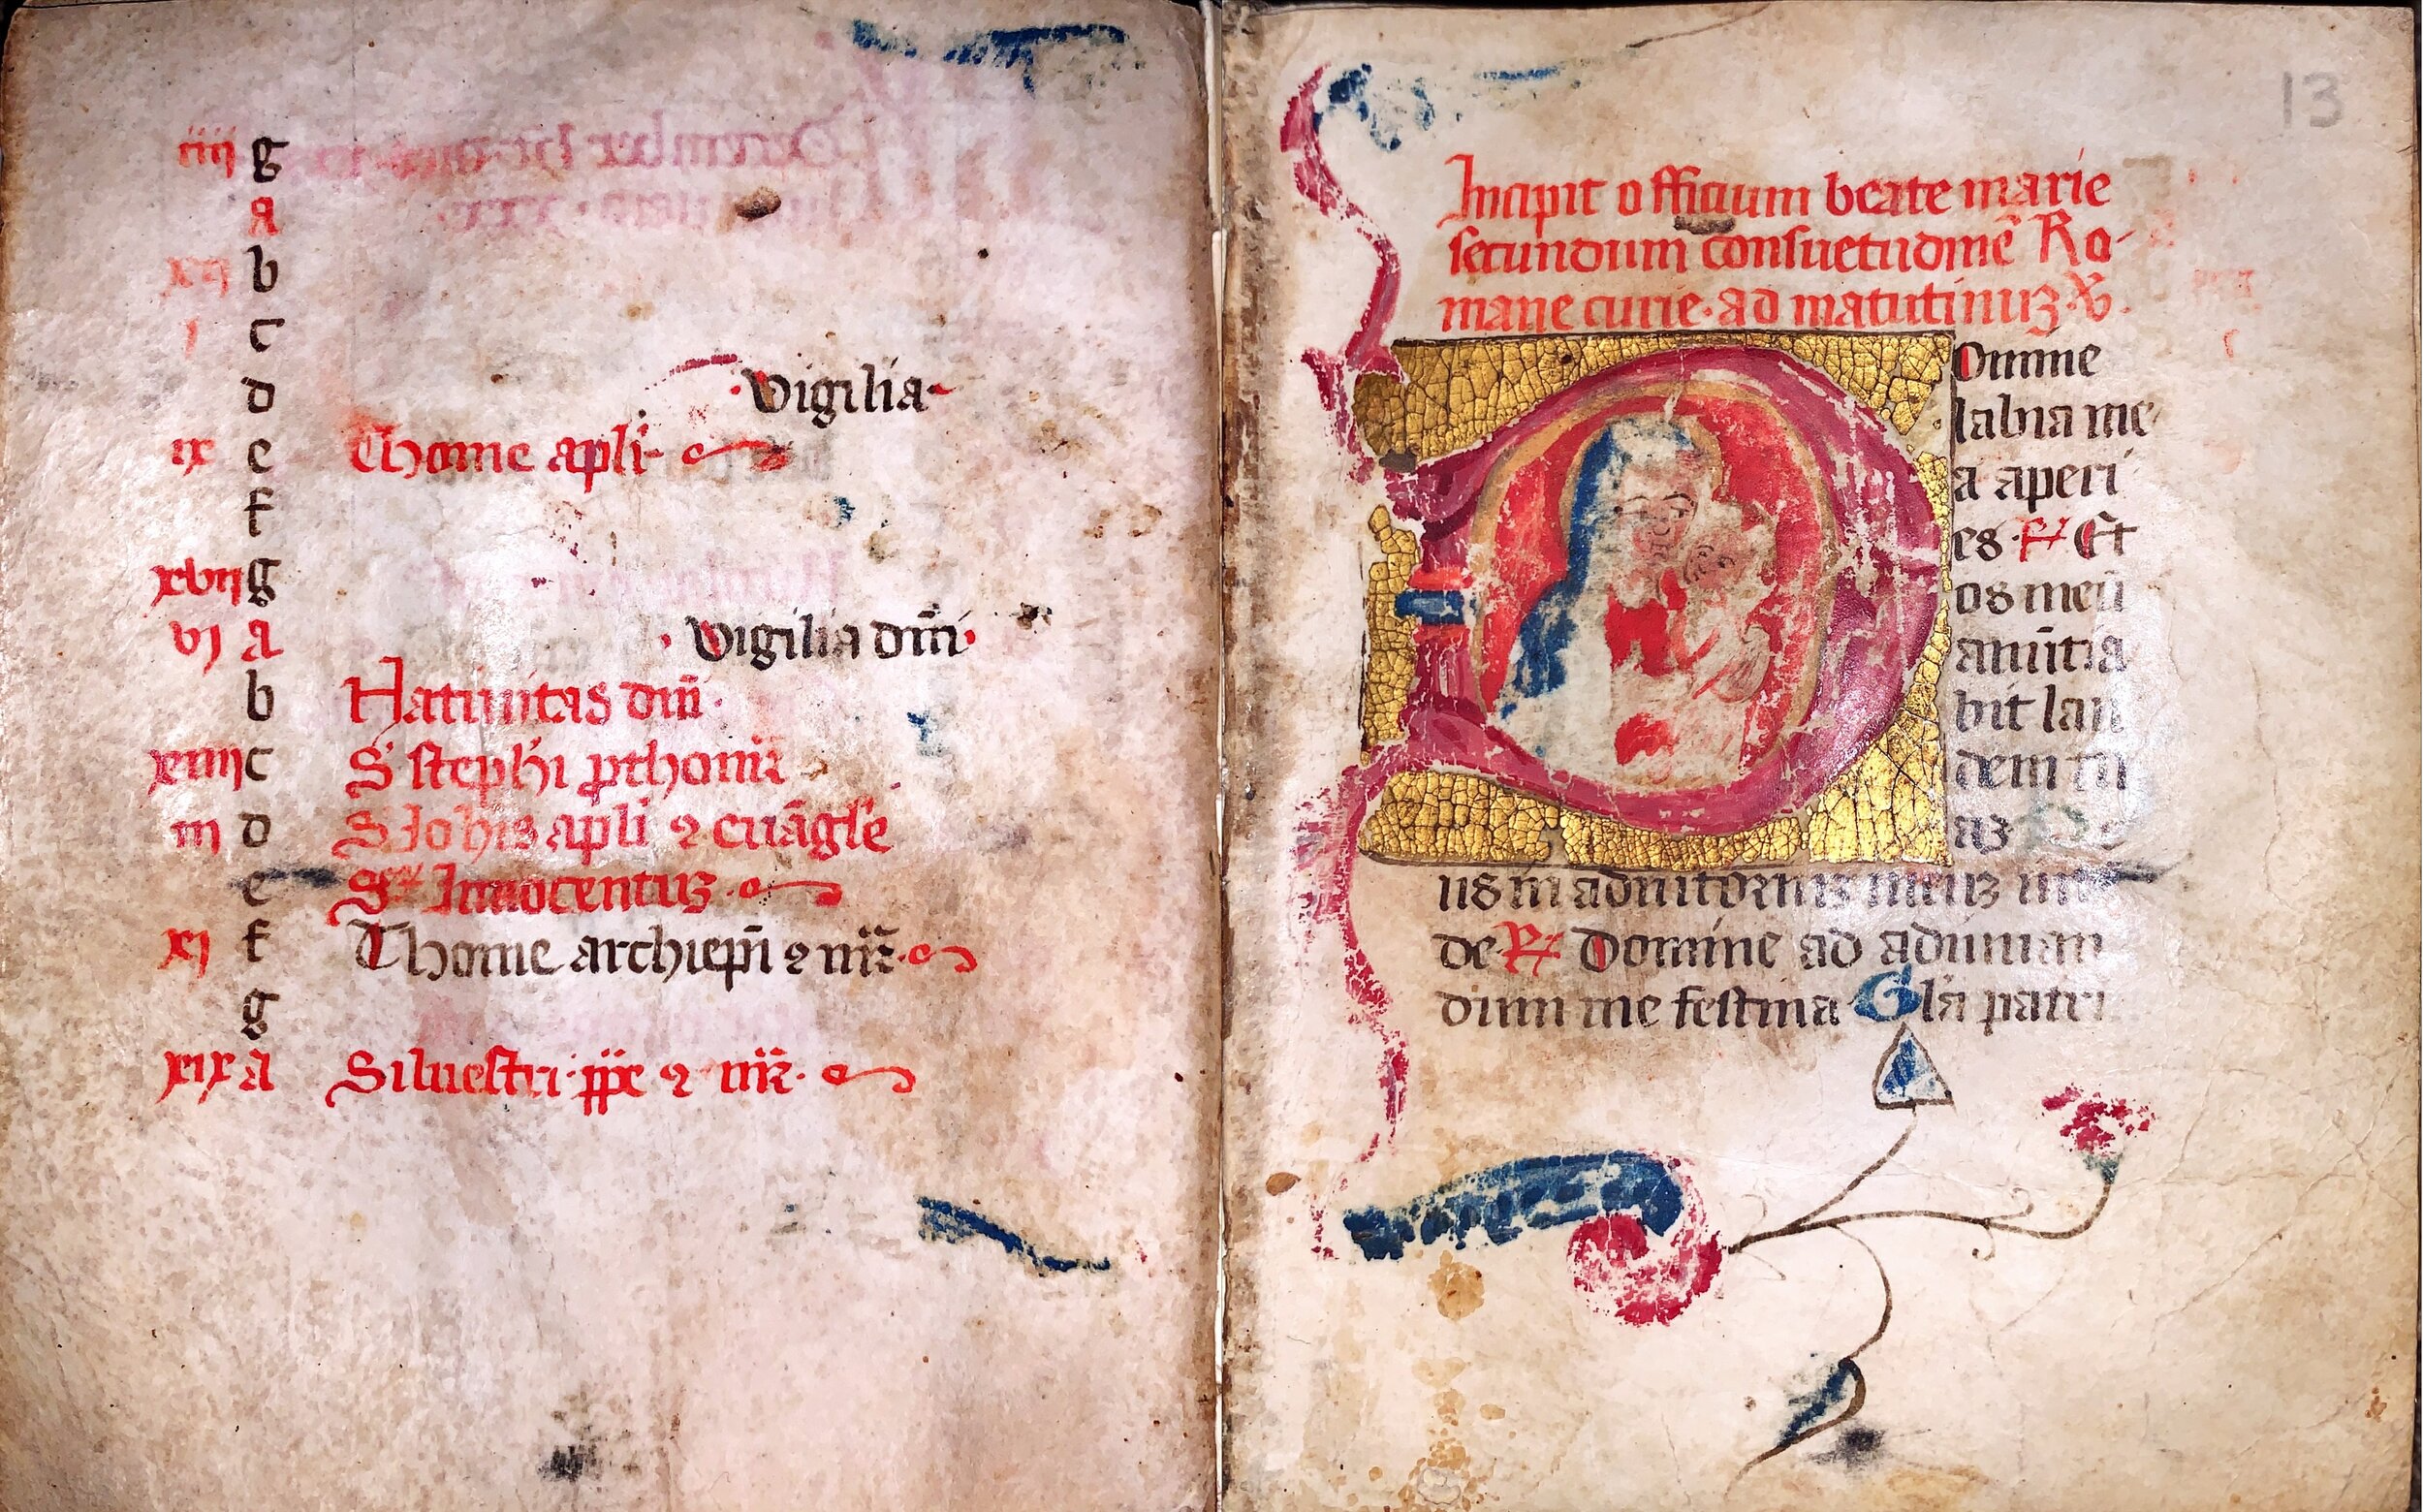 iiij g
a
xij b
i c
d ·Vigilia·
ix e Thome apłi·
f
xvij g
vj a ·Vigilia dñi·
b Natiuitas dñi·
xiiij c S stephi ꝓthomr̃
iij d S Johis apłi ⁊ euãgłe
e Innocentuꝫ·
xj f Thome archiepĩ ⁊ mr̃·
g
xix a Siluestri· pp̃e ⁊ mr̃·
13
Incipit officium beate marie
secundum consuetudinẽ Ro-
mane curie· ad matutinuꝫ ℣·
Domine
labia me
a aperi
es ℟ Et
os meũ
anũtia
bit lau
dem tu
aꝫ D
us in adiutoriuꝫ meuꝫ inte
de ℟ Domine ad adiuuan
dum me festina Gła patri